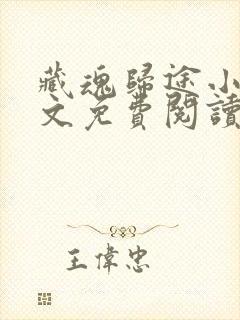 藏魂歸途小
文免費閱讀
王偉忠